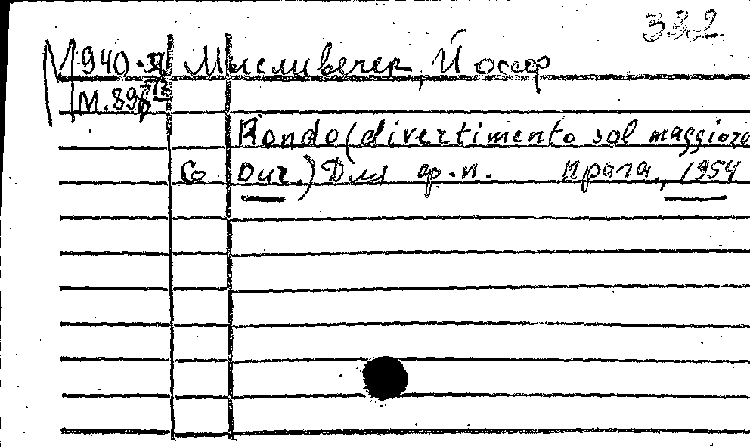 332
М940-XI Мысливечек, Йосеф
М.89
Rondo (divertimento sol maggiore
Co Dur.) Для ф.-п. Прага, 1954